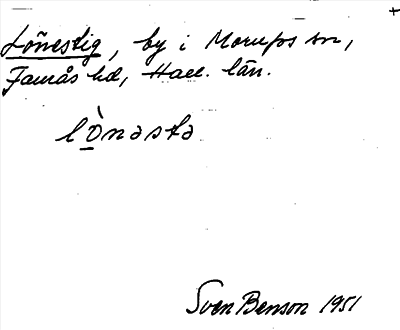 Lönestig, by i Morups sn,
Faurås hd, Hall. län.
lò̲nəstə
Sven Benson 1951